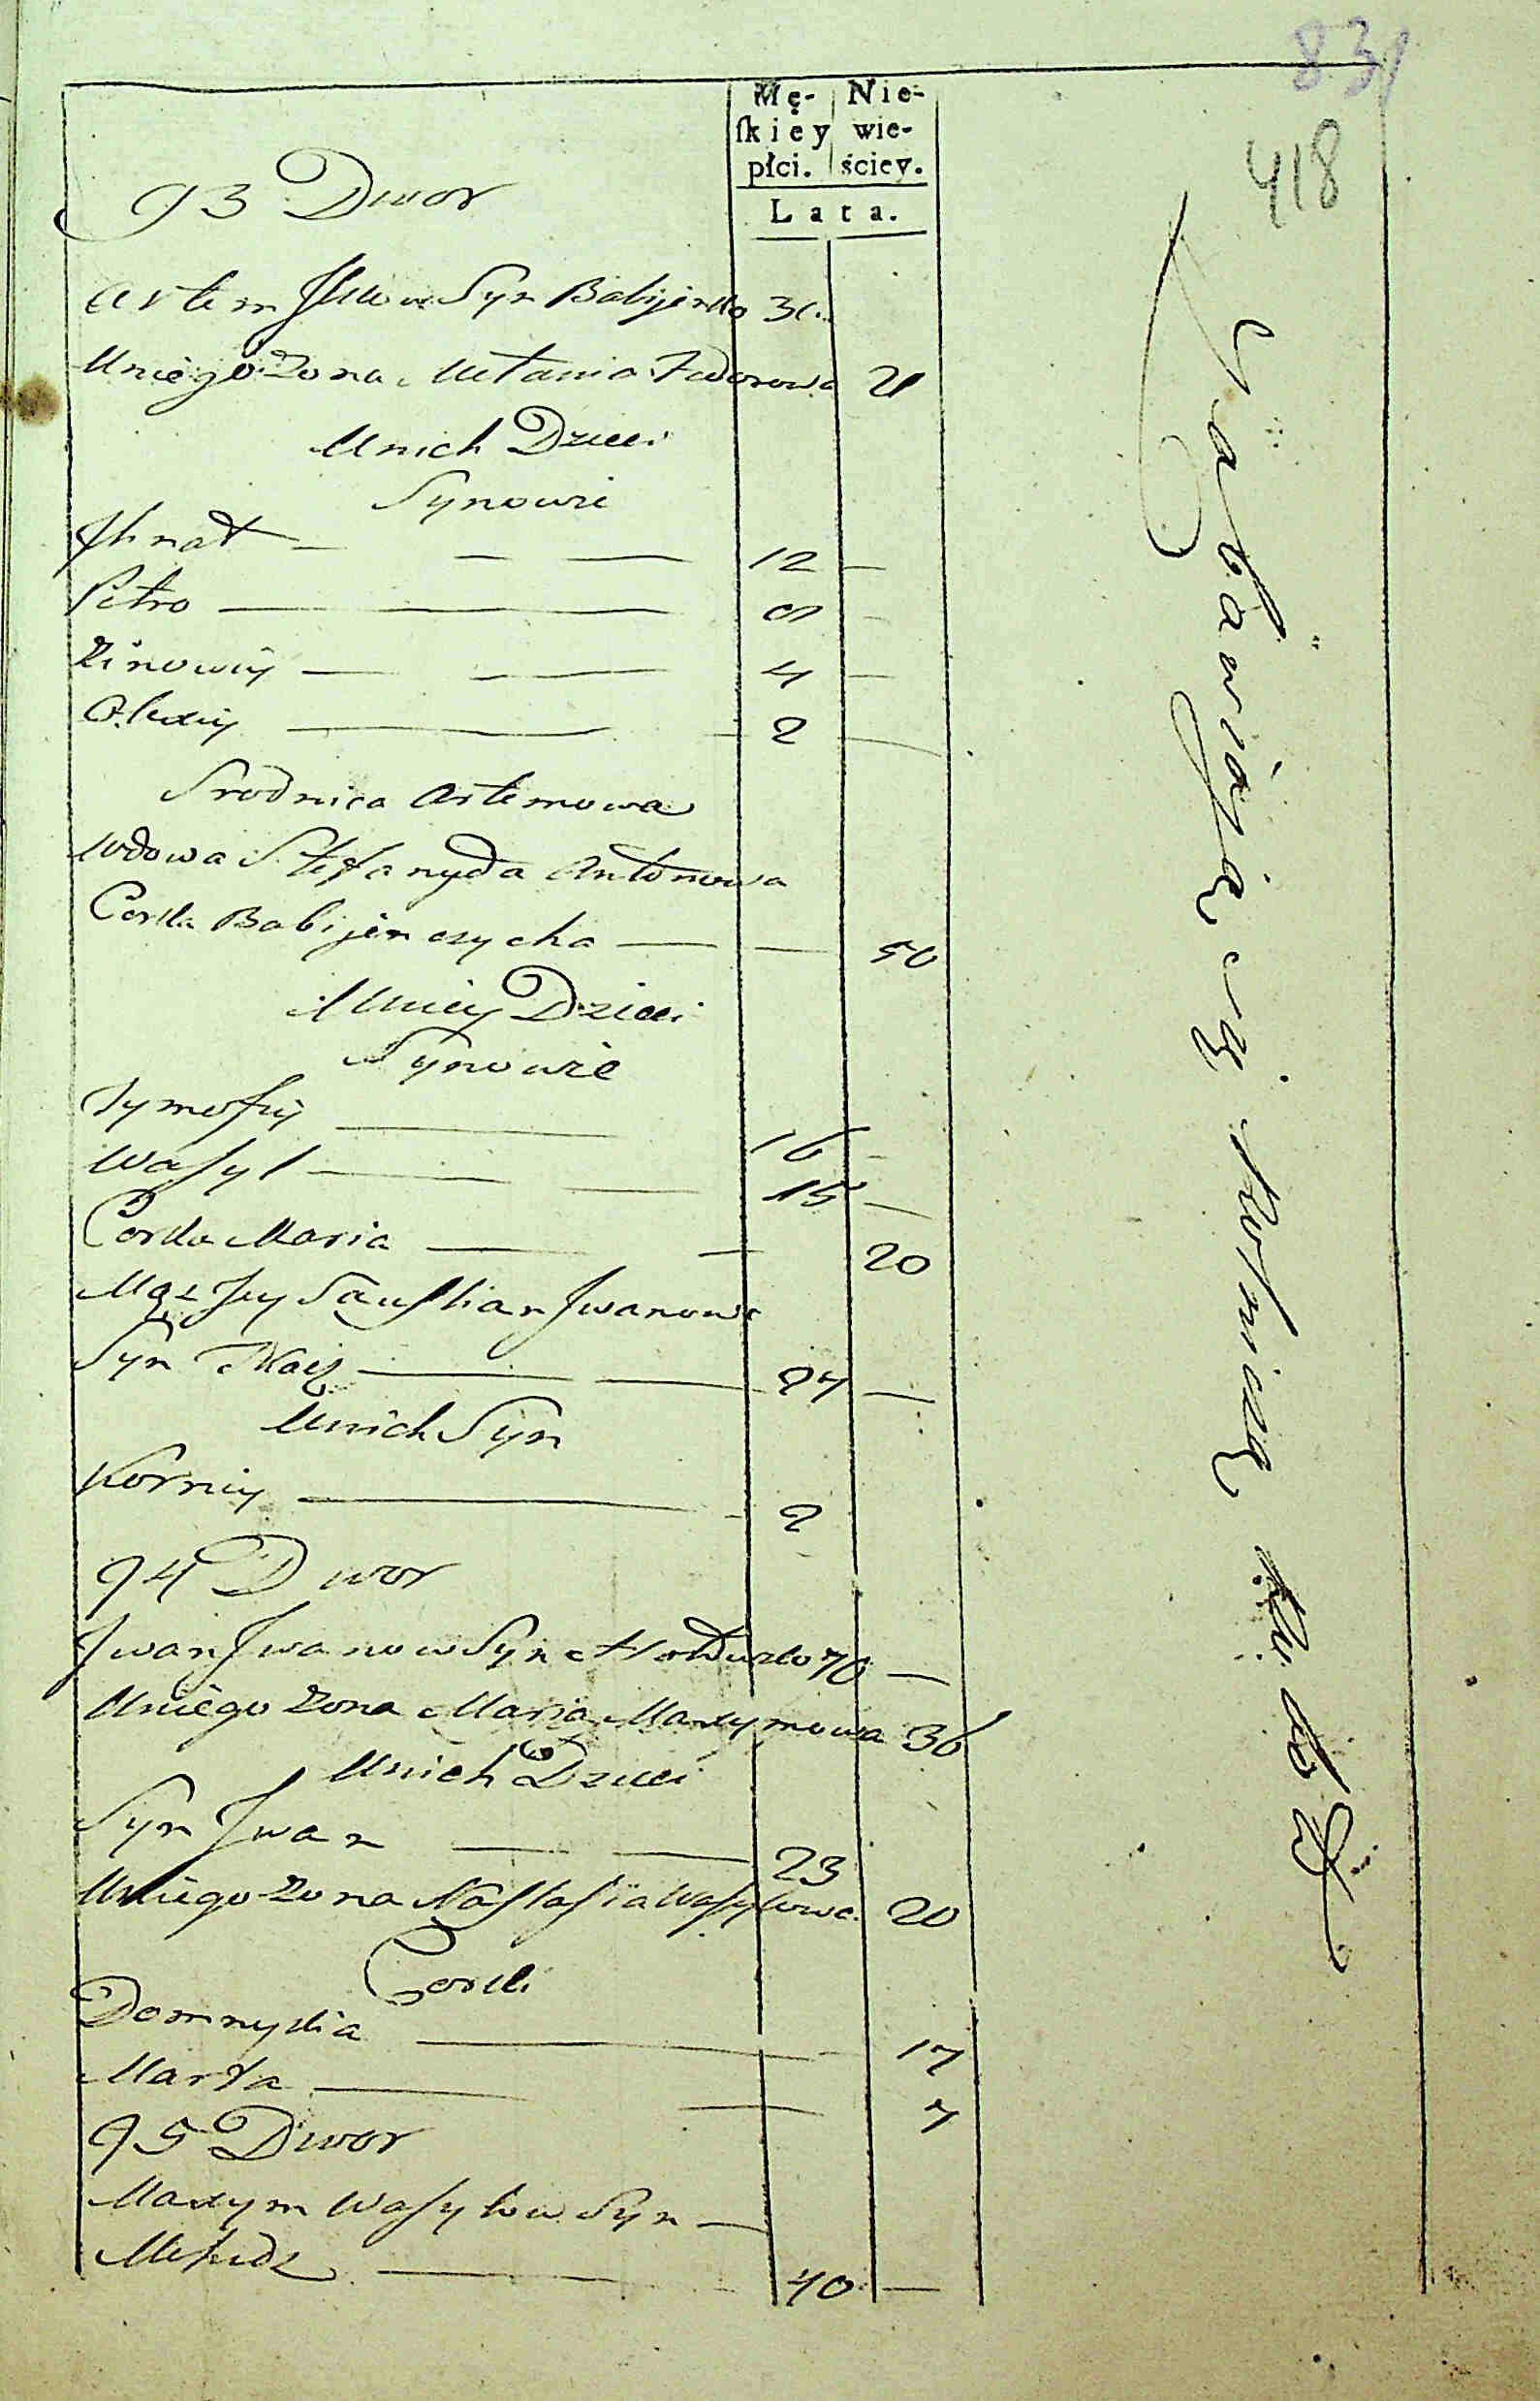 831
418
Mę- Nie-
ſkiey wie-
płci. ściey.
Lata.
93 Dwor
Artem Syn Babijenko
Uniego Zona Mełania Fedorowa 21
Unich Dzieci
Synowie
Jhnat — — — 12 —
Petro — — 9 —
Zinowiy — — 4 —
Olexiy — 2 —
Srodnica Artemowa
Wdowa Stefanyda Antonowa
Corka Babijenczycha — — 50
Uniey Dzieci
Synowie
Tymofiy — 16 —
Wasyl — — 15 —
Corka Maria — — 20
Mąz Jey Iwanow
Syn — — 24 —
Unich Syn
Korniy — 2
94 Dwor
Jwan Jwanow Syn 70 —
Uniego Zona Maria Maxymowa 36
Unich Dzieci
Syn Jwan — — 23
Uniego Zona Nastasia Wasylowa 20
Corki
Domnykia — 17
Marta — — 7
95 Dwor
Maxym Wasylow Syn —
— 40 —